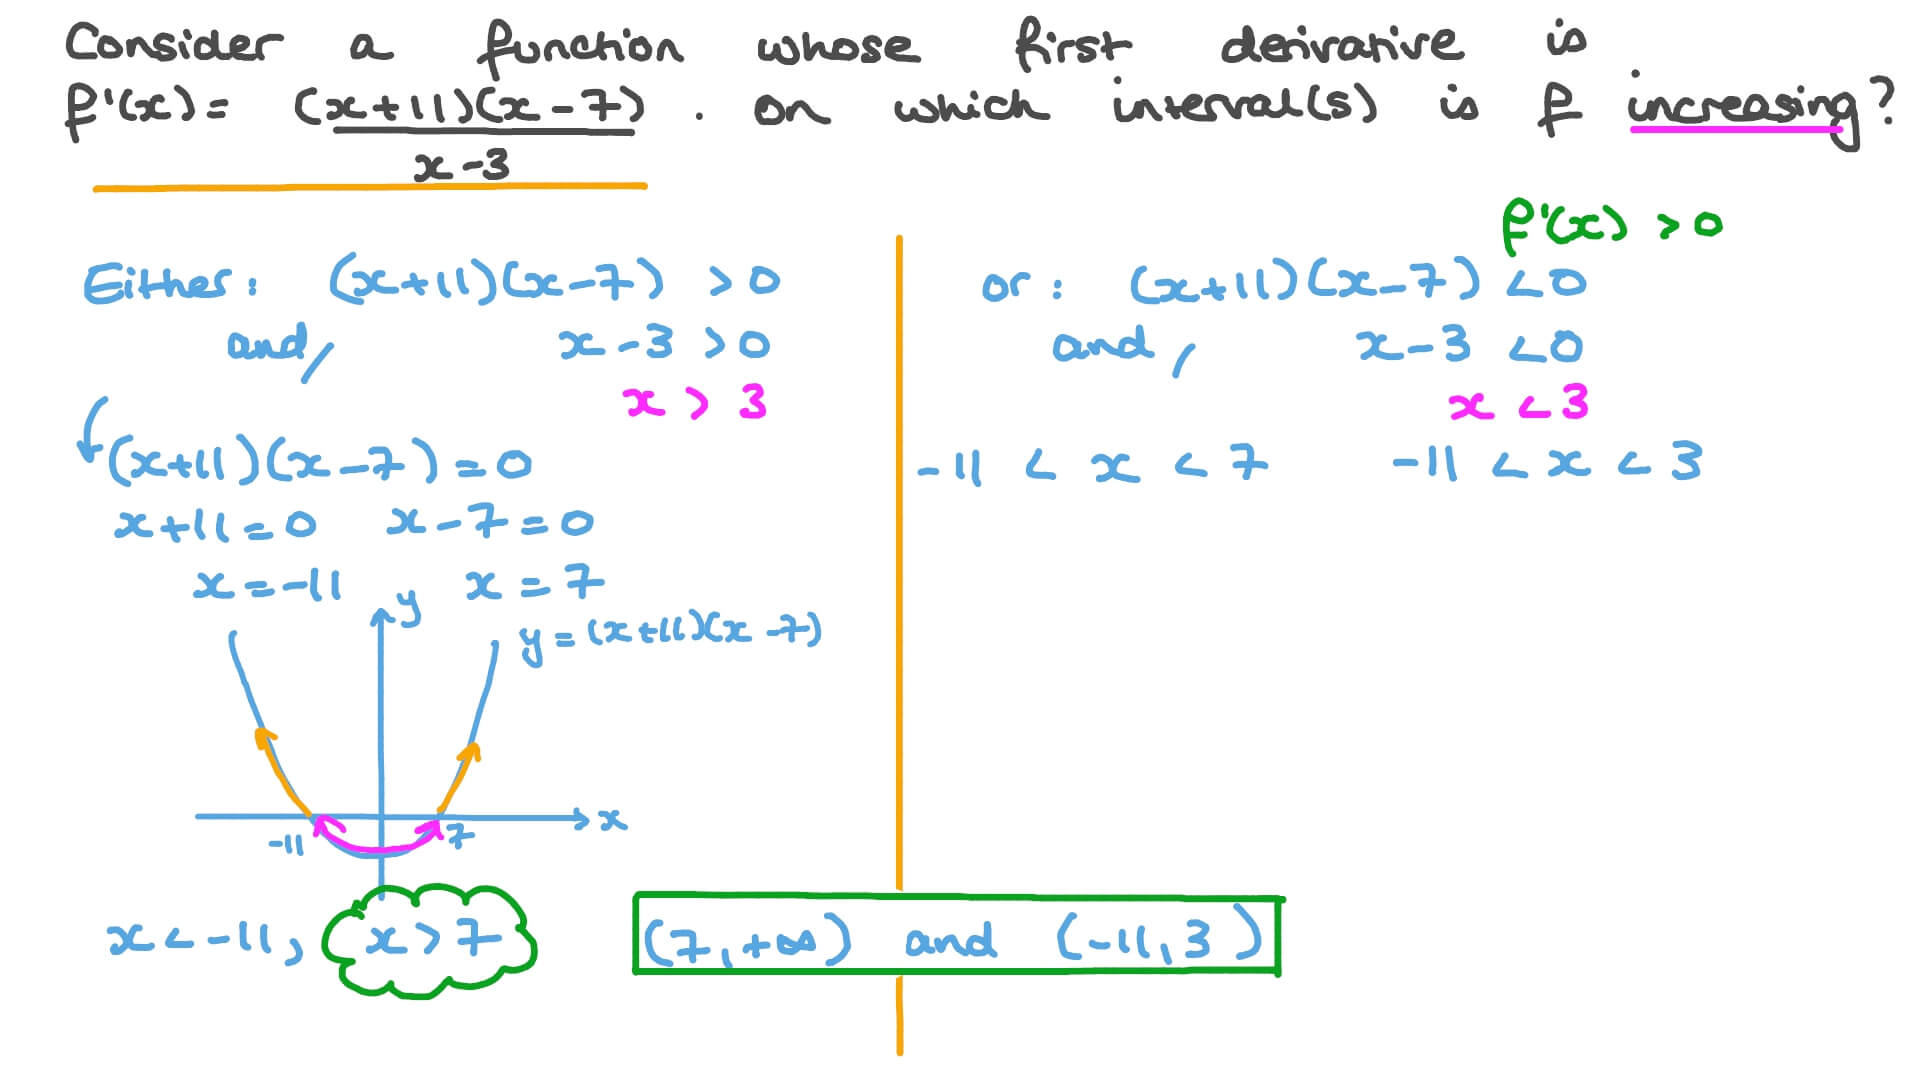 Consider a function whose first derivative is
f'(x) = (x+11)(x-7) . On which interval(s) is f increasing?
x-3
f'(x) > 0
Either: (x+11)(x-7) > 0
and, x-3 > 0
x > 3
(x+11)(x-7) = 0
x+11 = 0 x-7 = 0
x = -11 x = 7
y
y = (x+11)(x-7)
x
-11 7
x < -11, x > 7
or: (x+11)(x-7) < 0
and, x-3 < 0
x < 3
-11 < x < 7 -11 < x < 3
(7, +∞) and (-11, 3)